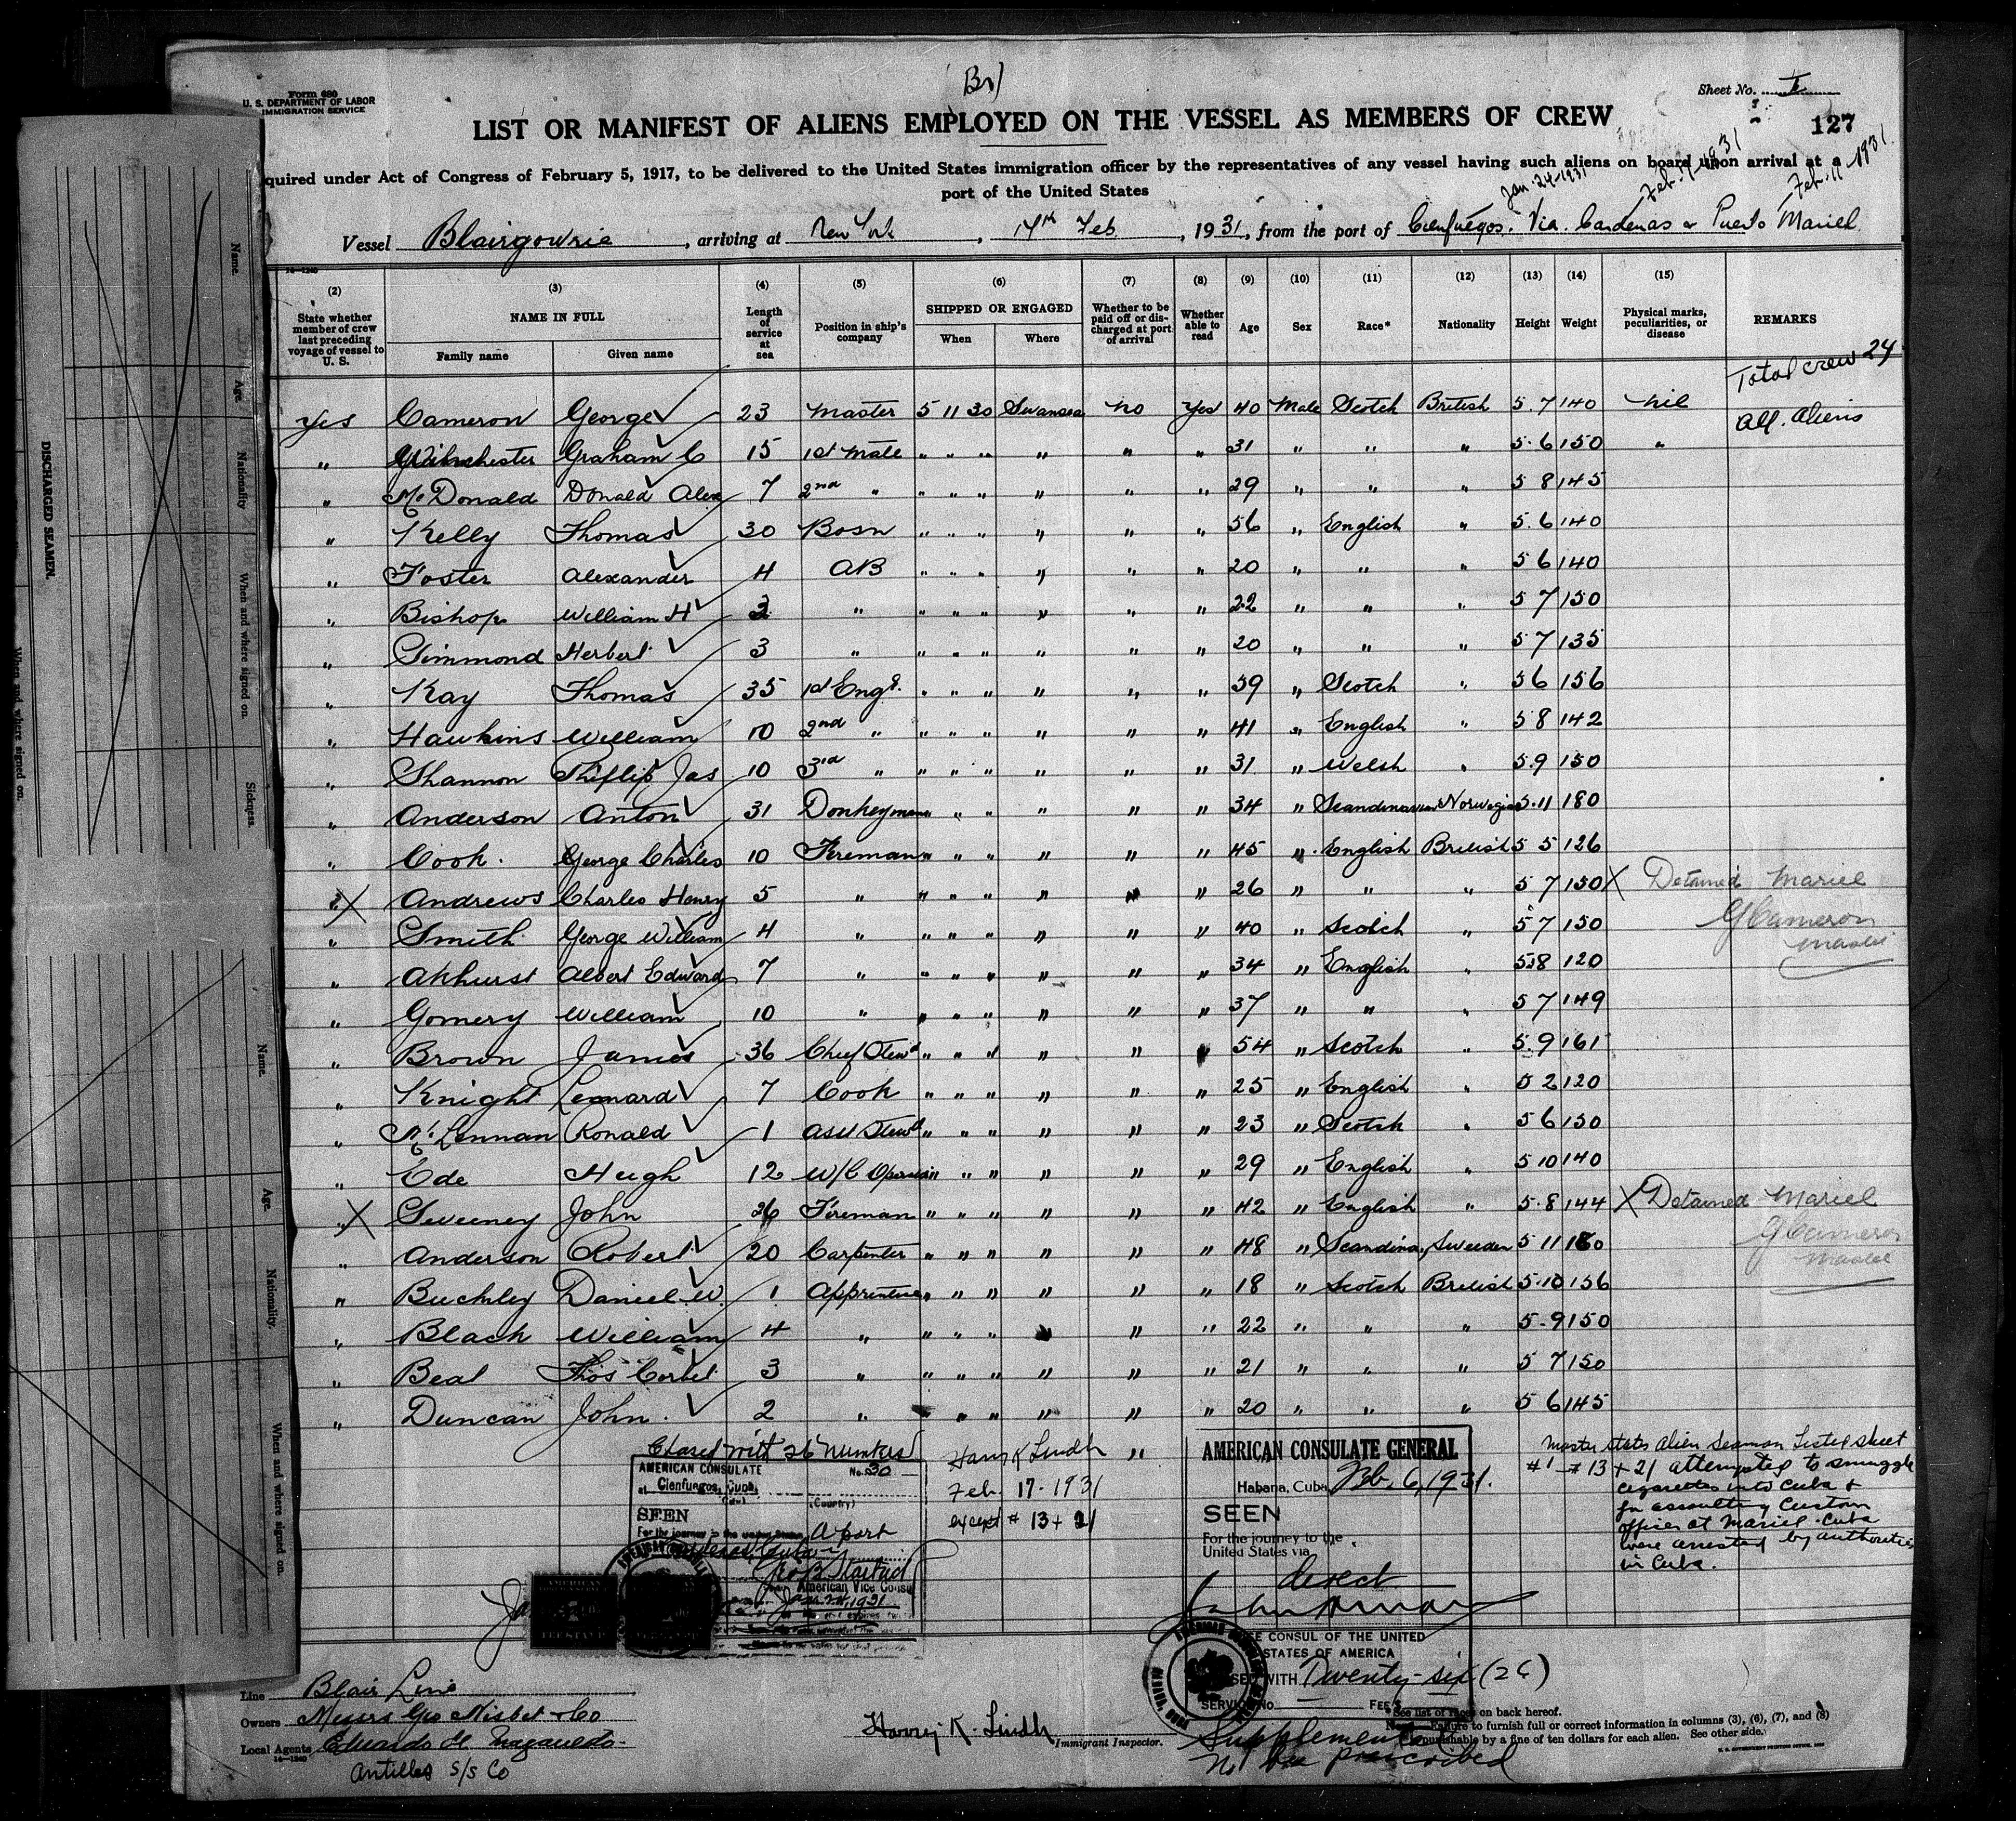 Form 680
U. S. DEPARTMENT OF LABOR
IMMIGRATION SERVICE
Br)
Sheet No. I
127
LIST OR MANIFEST OF ALIENS EMPLOYED ON THE VESSEL AS MEMBERS OF CREW
quired under Act of Congress of February 5, 1917, to be delivered to the United States immigration officer by the representatives of any vessel having such aliens on board upon arrival at a
port of the United States
Jan-24-1931 Feb. 1931 Feb-11-1931.
Vessel Blairgowrie, arriving at New York, 17th Feb, 1931, from the port of Cienfuegos. Via. Cardenas & Puerto Mariel
14-1240
(2) (3) (4) (5) (6) (7) (8) (9) (10) (11) (12) (13) (14) (15)
State whether member of crew last preceding voyage of vessel to U. S. NAME IN FULL Family name Given name Length of service at sea Position in ship's company SHIPPED OR ENGAGED When Where Whether to be paid off or discharged at port of arrival Whether able to read Age Sex Race* Nationality Height Weight Physical marks, peculiarities, or disease REMARKS
Total crew 24
All. Aliens
Yes Cameron George 23 Master 5 11 30 Swansea No Yes 40 Male Scotch British 5.7 140 Nil
" Winchester Graham C 15 1st Mate " " " " " " 31 " " " 5.6 150 "
" McDonald Donald Alex 7 2nd " " " " " " " 29 " " " 5 8 145
" Kelly Thomas 30 Bosn " " " " " " 56 " English " 5.6 140
" Foster Alexander 4 AB " " " " " " 20 " " " 5 6 140
" Bishop William H 3 " " " " " " " 22 " " " 5 7 150
" Simmond Herbert 3 " " " " " " " 20 " " " 5 7 135
" Kay Thomas 35 1st Engr. " " " " " " 59 " Scotch " 5 6 156
" Hawkins William 10 2nd " " " " " " " 41 " English " 5 8 142
" Shannon Phillip Jas 10 3rd " " " " " " " 31 " Welsh " 5.9 150
" Anderson Anton 31 Donkeyman " " " " " " 34 " Scandinavian Norwegian 5.11 180
" Cook. George Charles 10 Fireman " " " " " " 45 " English British 5 5 126
" X Andrews Charles Henry 5 " " " " " " " 26 " " " 5 7 150 X Detained Mariel
GCameron
Master
" Smith George William 4 " " " " " " " 40 " Scotch " 5 7 150
" Akhurst Albert Edward 7 " " " " " " " 34 " English " 5.8 120
" Gomery William 10 " " " " " " " 37 " " " 5 7 149
" Brown James 36 Chief Stewd " " " " " " 54 " Scotch " 5.9 161
" Knight Leonard 7 Cook " " " " " " 25 " English " 5 2 120
" McLennan Ronald 1 Asst Stewd " " " " " " 23 " Scotch " 5 6 150
" Ede Hugh 12 W/C Operator " " " " " " 29 " English " 5 10 140
" X Sweeney John 26 Fireman " " " " " " 42 " English " 5.8 144 X Detained Mariel
GCameron
Master
" Anderson Robert 20 Carpenter " " " " " " 48 " Scandinav Sweeden 5 11 160
" Buckley Daniel W. 1 Apprentice " " " " " " 18 " Scotch British 5.10 156
" Black William 4 " " " " " " " 22 " " " 5.9 150
" Beal Thos Corbet 3 " " " " " " " 21 " " " 5 7 150
" Duncan John. 2 " " " " " " " 20 " " " 5 6 145
Closed with 26 numbers
Harry K Lindh
Feb. 17-1931
except # 13 + 21
AMERICAN CONSULATE No. 30
at Cienfuegos, Cuba,
(City) (Country)
SEEN
For the journey to the United States
A port
American Vice Consul
Jan 24, 1931
AMERICAN CONSULATE GENERAL
Habana, Cuba, Feb. 6, 1931.
SEEN
For the journey to the
United States via
direct
VICE CONSUL OF THE UNITED
STATES OF AMERICA
CLOSED WITH Twenty-six (26)
SERVICE No FEE $
Supplemental
No fee prescribed
Master states Alien Seaman Listed sheet
#1 - # 13 + 21 attempted to smuggle
cigarettes into Cuba &
for assaulting Custom
officer at Mariel. Cuba
were arrested by authorities
in Cuba.
Line Blair Line
Owners Messrs Geo Nisbet & Co
Local Agents
14-1240
Antilles S/S Co
Harry K. Lindh
Immigrant Inspector.
* See list of races on back hereof.
Note.—Failure to furnish full or correct information in columns (3), (6), (7), and (8)
is punishable by a fine of ten dollars for each alien. See other side.
U. S. GOVERNMENT PRINTING OFFICE
DISCHARGED SEAMEN.
Name. Age. Nationality When and where signed on. Sickness.
When and where signed on.
Name. Age. Nationality. When and where signed on.